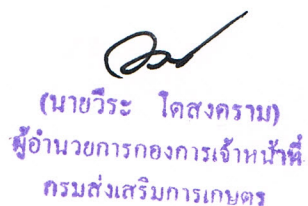 (นายวีระ โคสงคราม)
ผู้อำนวยการกองการเจ้าหน้าที่
กรมส่งเสริมการเกษตร